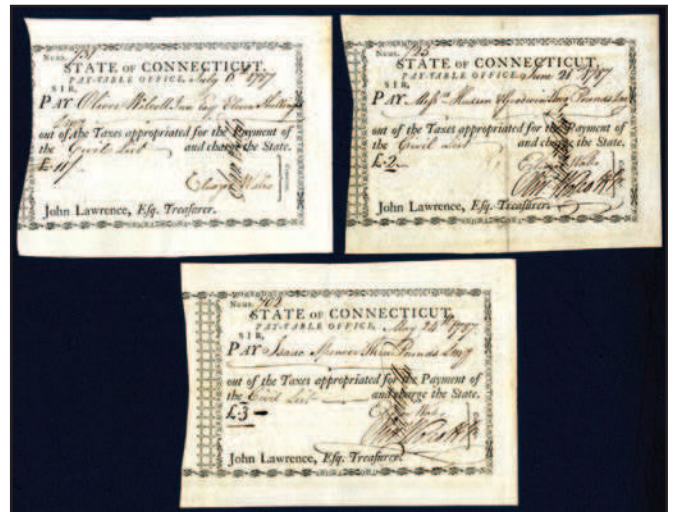 NUMB. 731
STATE OF CONNECTICUT,
PAY-TABLE OFFICE, July 6th 1787
SIR,
PAY Oliver Wolcott Jun Esq Eleven Shillings
out of the Taxes appropriated for the Payment of
the Civil List and charge the State.
£ 11/
Eleazr Wales
John Lawrence, Esq. Treasurer.
NUMB. 723
STATE OF CONNECTICUT,
PAY-TABLE OFFICE, June 21 1787
SIR,
PAY Messrs Hudson & Goodwin Two Pounds
out of the Taxes appropriated for the Payment of
the Civil List and charge the State.
£ 2
Eleazr Wales
John Lawrence, Esq. Treasurer.
NUMB. 702
STATE OF CONNECTICUT,
PAY-TABLE OFFICE, May 24th 1787
SIR,
PAY Isaac Spencer Three Pounds
out of the Taxes appropriated for the Payment of
the Civil List and charge the State.
£ 3
Eleazr Wales
John Lawrence, Esq. Treasurer.